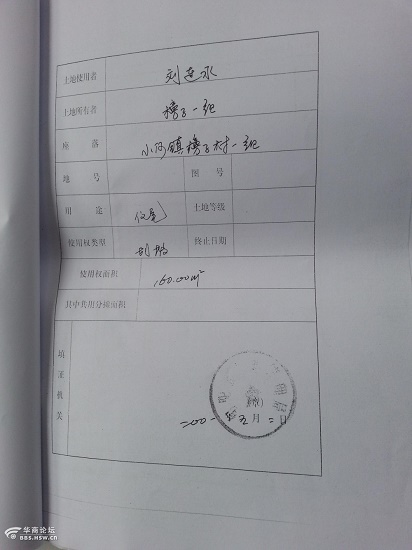 土地使用者 刘连水
土地所有者 一组
座落 小河镇 村一组
地号 图号
用途 住宅 土地等级
使用权类型 划拨 终止日期
使用权面积 160.00m²
其中共用分摊面积
填证机关
(章)
二00一年五月二日
华商论坛
BBS.HSW.CN